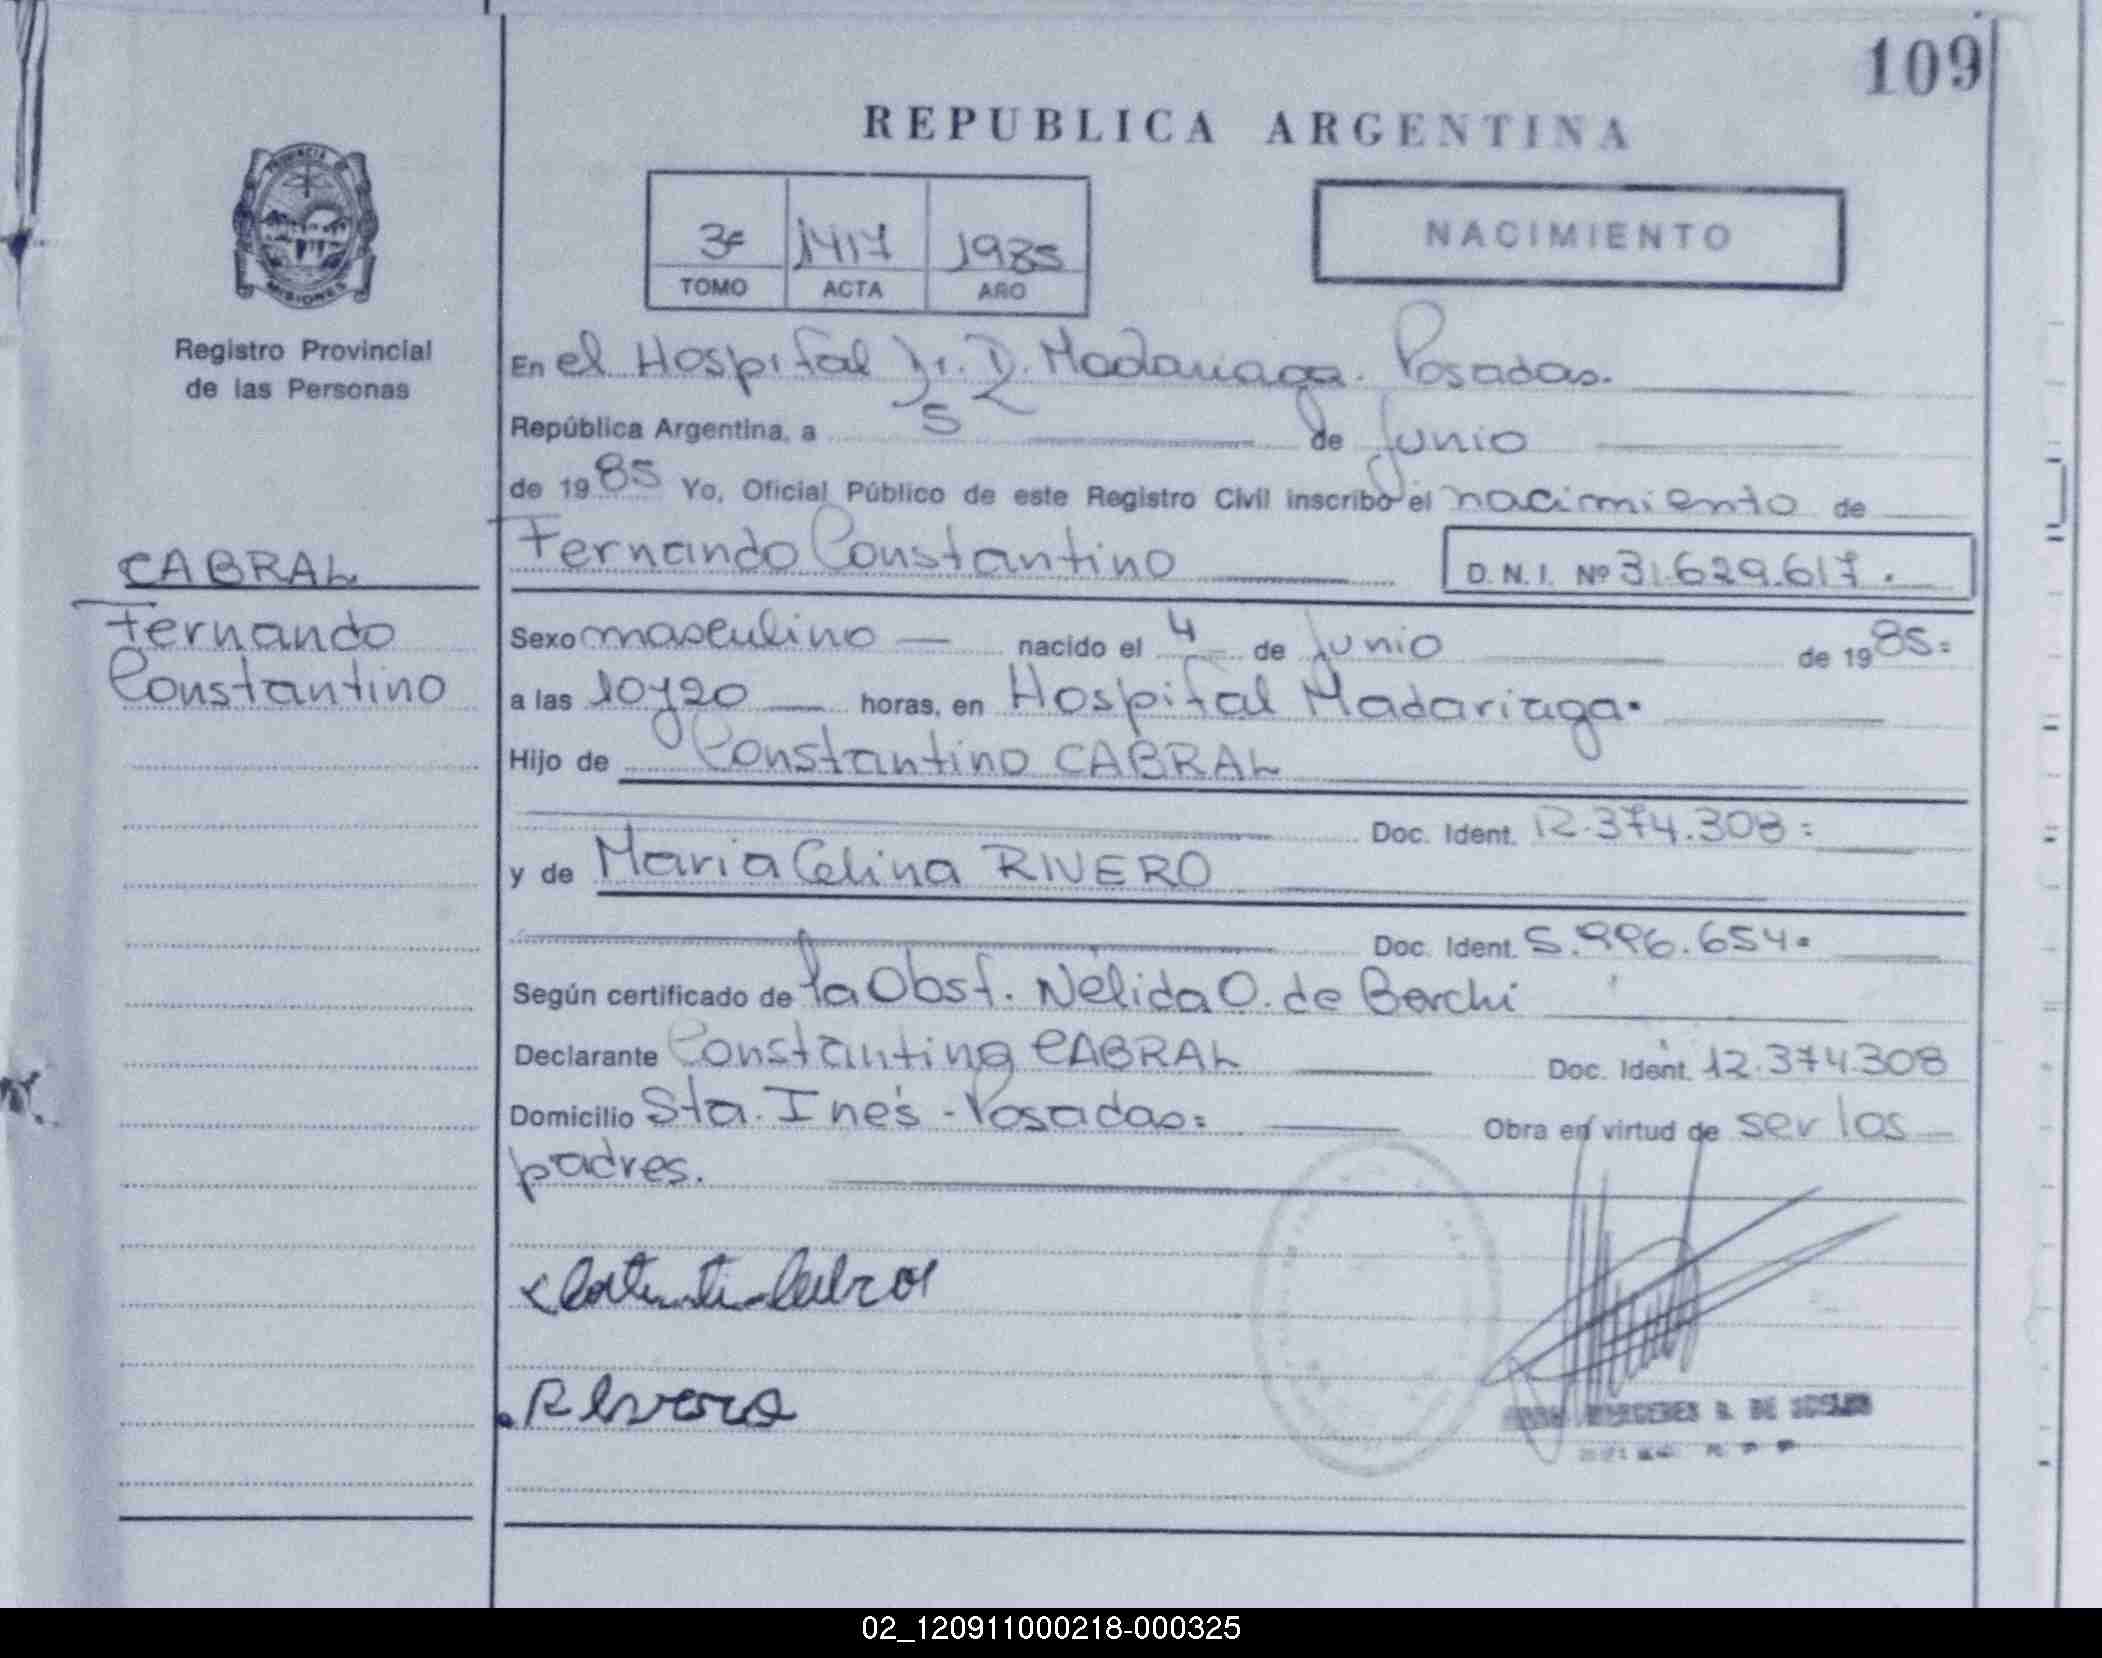 109
REPUBLICA ARGENTINA
PROVINCIA DE
MISIONES
Registro Provincial
de las Personas
3º 1417 1985
TOMO ACTA AÑO
NACIMIENTO
En el Hospital Dr. R. Madariaga. Posadas.
República Argentina, a 5 de Junio
de 1985 Yo, Oficial Público de este Registro Civil inscribo el nacimiento de
Fernando Constantino D.N.I. Nº 31.629.617.
CABRAL
Fernando
Constantino
Sexo masculino nacido el 4 de Junio de 1985=
a las 10y20 horas, en Hospital Madariaga.
Hijo de Constantino CABRAL
Doc. Ident. 12.374.308=
y de Maria Celina RIVERO
Doc. Ident. 5.996.654.
Según certificado de la Obst. Nélida O. de Berchi
Declarante Constantino CABRAL Doc. Ident. 12.374.308
Domicilio Sta. Inés - Posadas= Obra en virtud de ser los
padres.
02_120911000218-000325